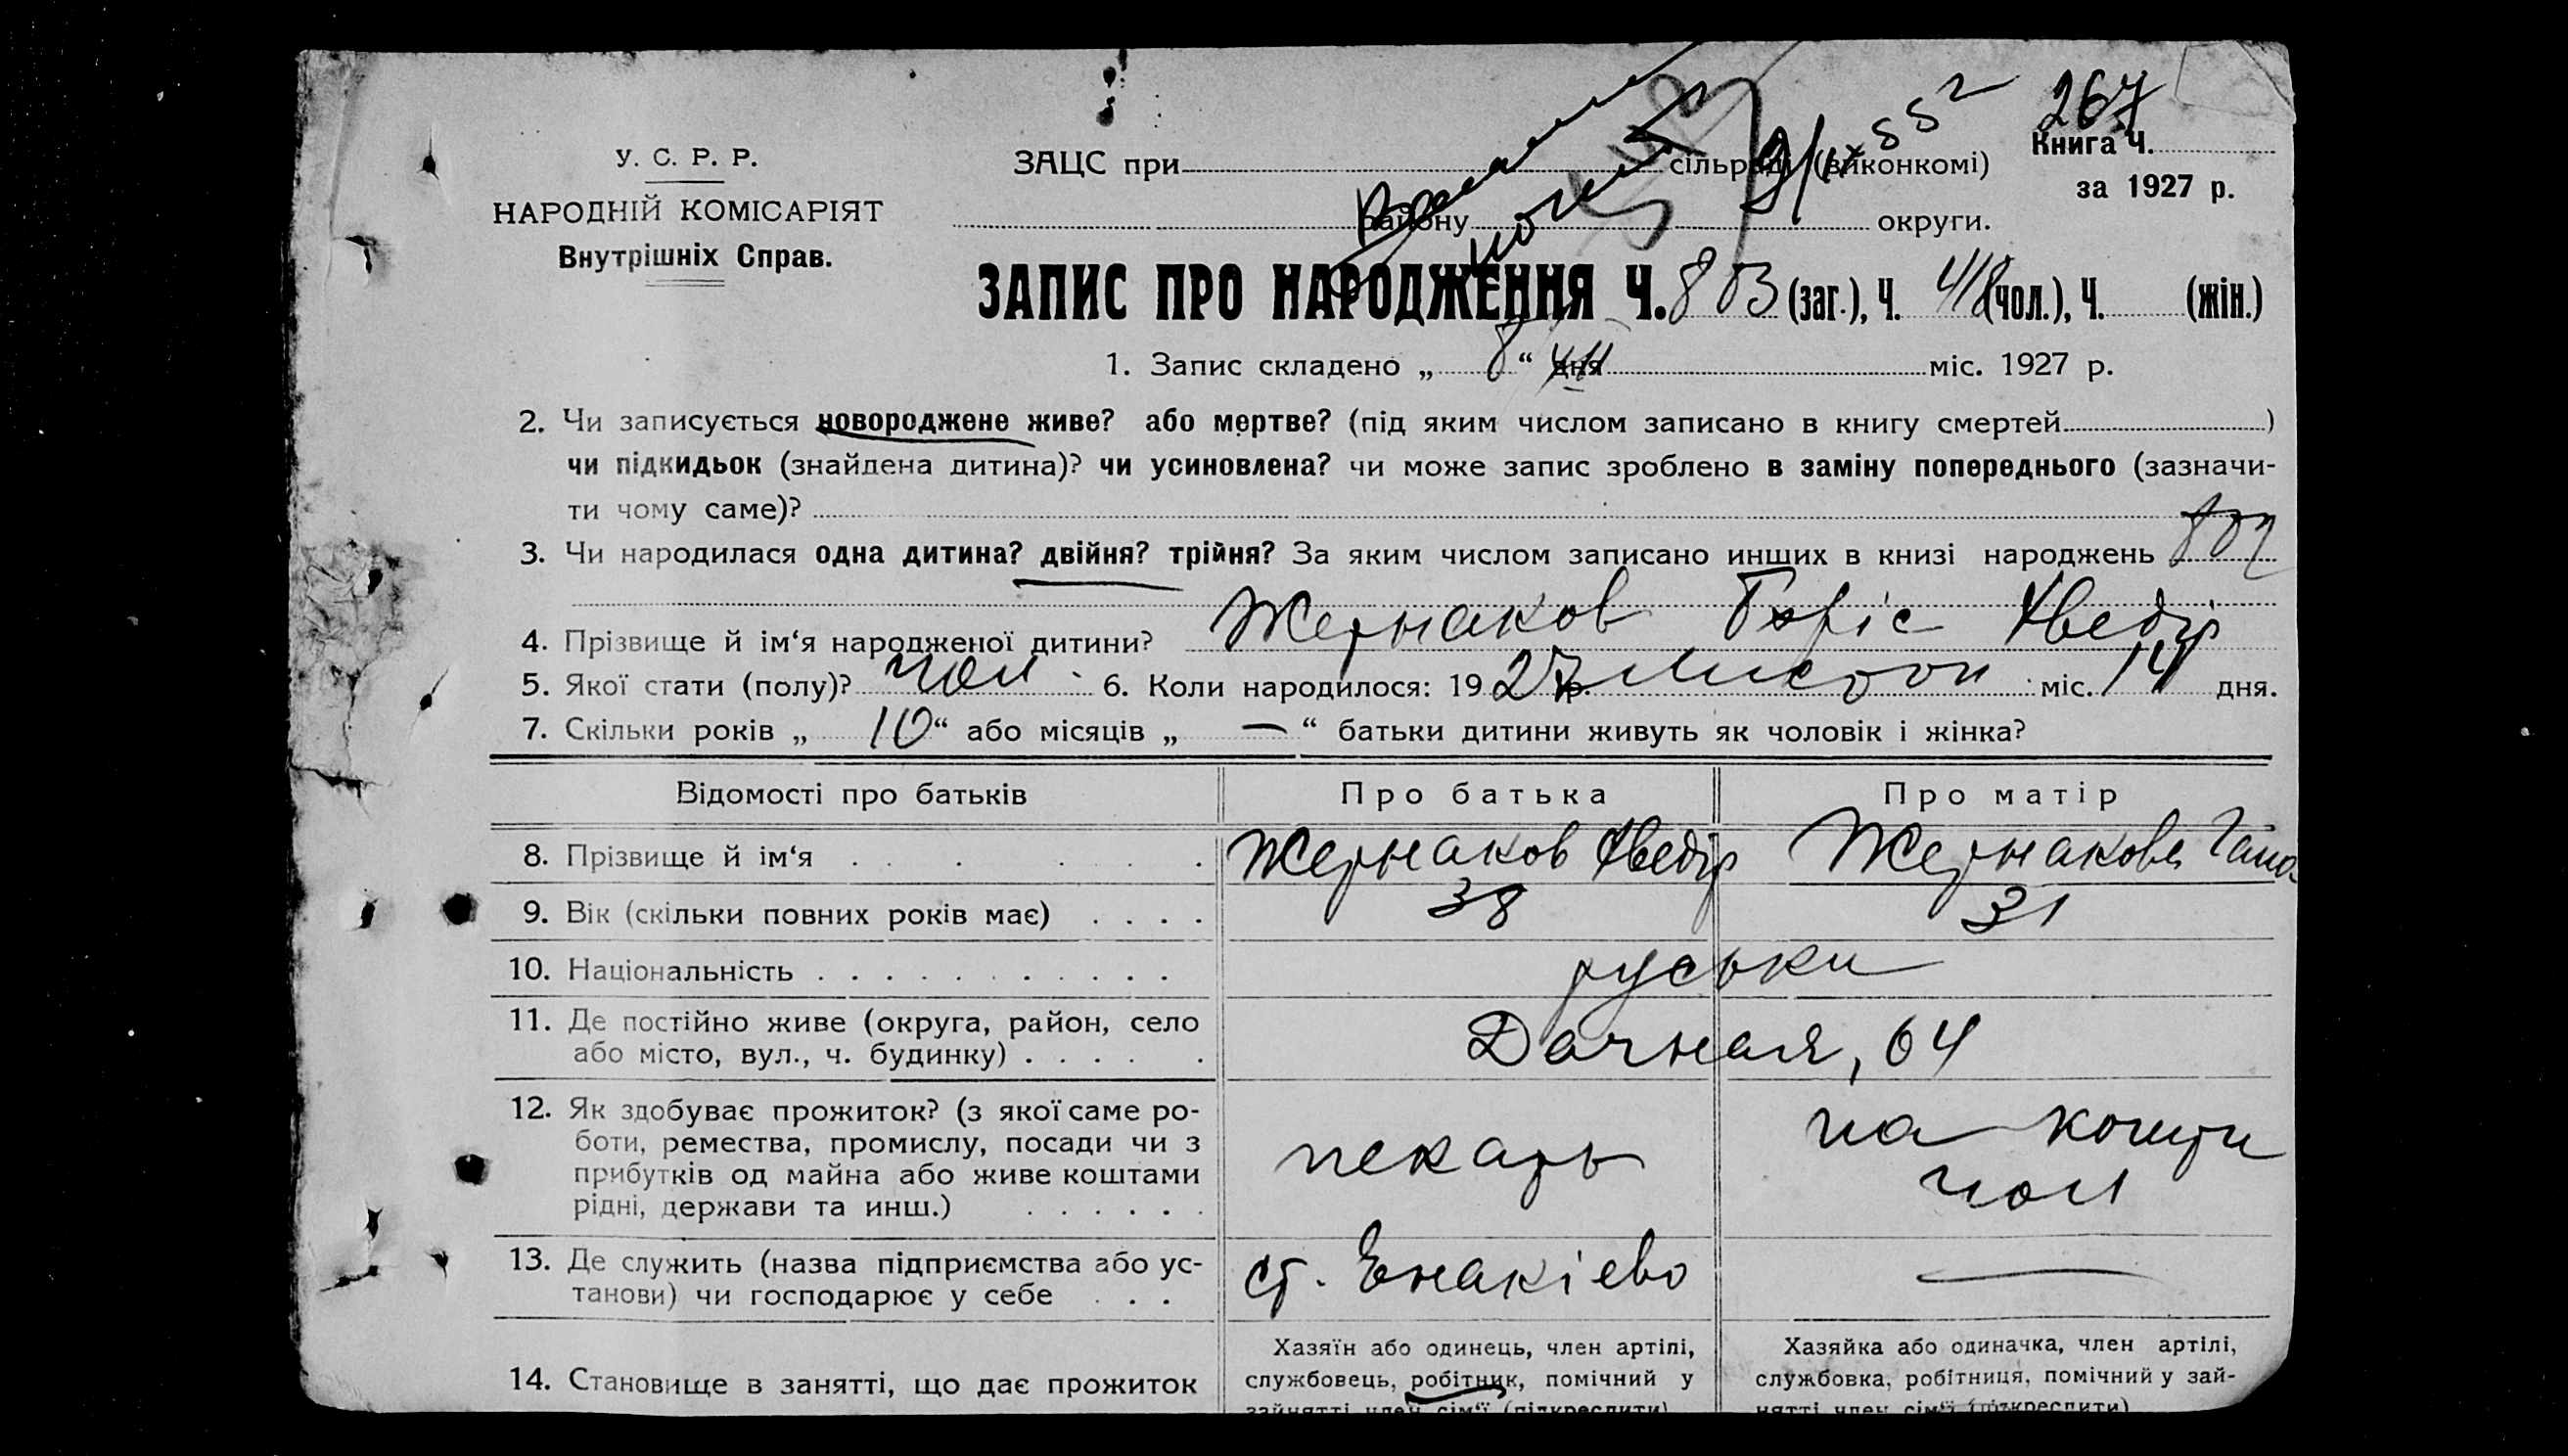 267
У. С. Р. Р.
ЗАЦС при сільраді (виконкомі)
Книга Ч.
за 1927 р.
НАРОДНІЙ КОМІСАРІЯТ
району округи.
Внутрішніх Справ.
ЗАПИС ПРО НАРОДЖЕННЯ Ч. 803 (заг.), Ч. 418 (чол.), Ч. (жін.)
1. Запис складено „ 8 “ дня міс. 1927 р.
2. Чи записується новороджене живе? або мертве? (під яким числом записано в книгу смертей )
чи підкидьок (знайдена дитина)? чи усиновлена? чи може запис зроблено в заміну попереднього (зазначи-
ти чому саме)?
3. Чи народилася одна дитина? двійня? трійня? За яким числом записано инших в книзі народжень 802
4. Прізвище й ім‘я народженої дитини? Жернаков Боріс Хведір
5. Якої стати (полу)? чол. 6. Коли народилося: 1927 р. листоп міс. 14 дня.
7. Скільки років „ 10 “ або місяців „ — “ батьки дитини живуть як чоловік і жінка?
Відомості про батьків Про батька Про матір
8. Прізвище й ім‘я . . . . . . Жернаков Хведір Жернакова Гана
9. Вік (скільки повних років має) . . . . 38 31
10. Національність . . . . . . . . . . . руськи
11. Де постійно живе (округа, район, село
або місто, вул., ч. будинку) . . . . . Дачная, 64
12. Як здобуває прожиток? (з якої саме ро-
боти, ремества, промислу, посади чи з
прибутків од майна або живе коштами
рідні, держави та инш.) . . . . . .
пекарь
на кошти
чол
13. Де служить (назва підприємства або ус-
танови) чи господарює у себе . . .
ст. Енакіево —
14. Становище в занятті, що дає прожиток
Хазяїн або одинець, член артілі,
службовець, робітник, помічний у
зайнятті член сім‘ї (підкреслити)
Хазяйка або одиначка, член артілі,
службовка, робітниця, помічний у зай-
нятті член сім‘ї (підкреслити)